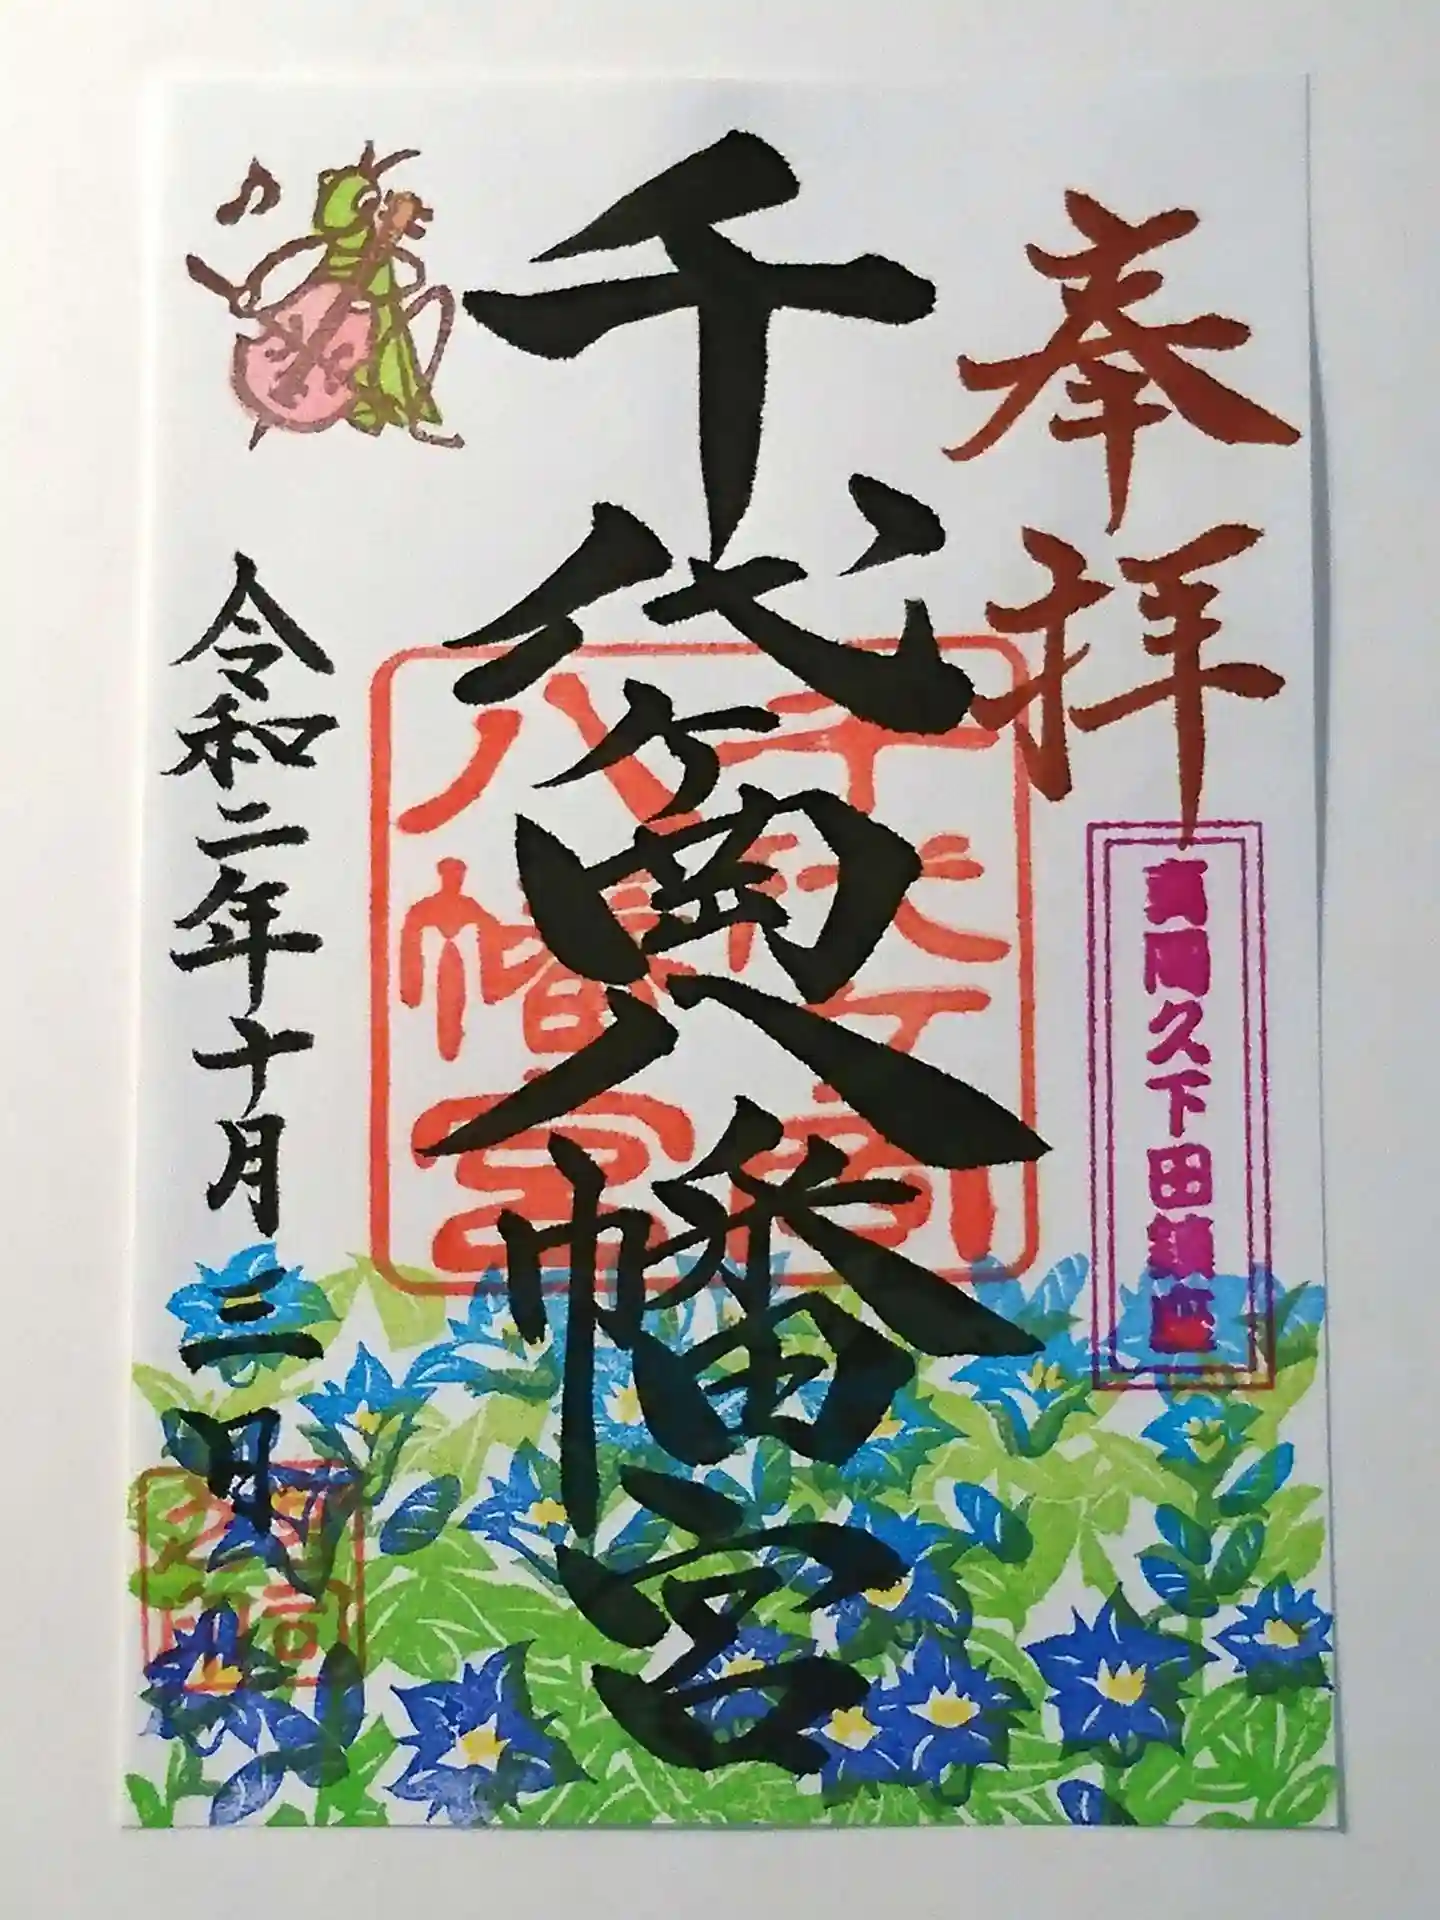 奉拝
真岡久下田鎮座
千代ヶ岡八幡宮
千代ケ岡
八幡宮
令和二年十月三日